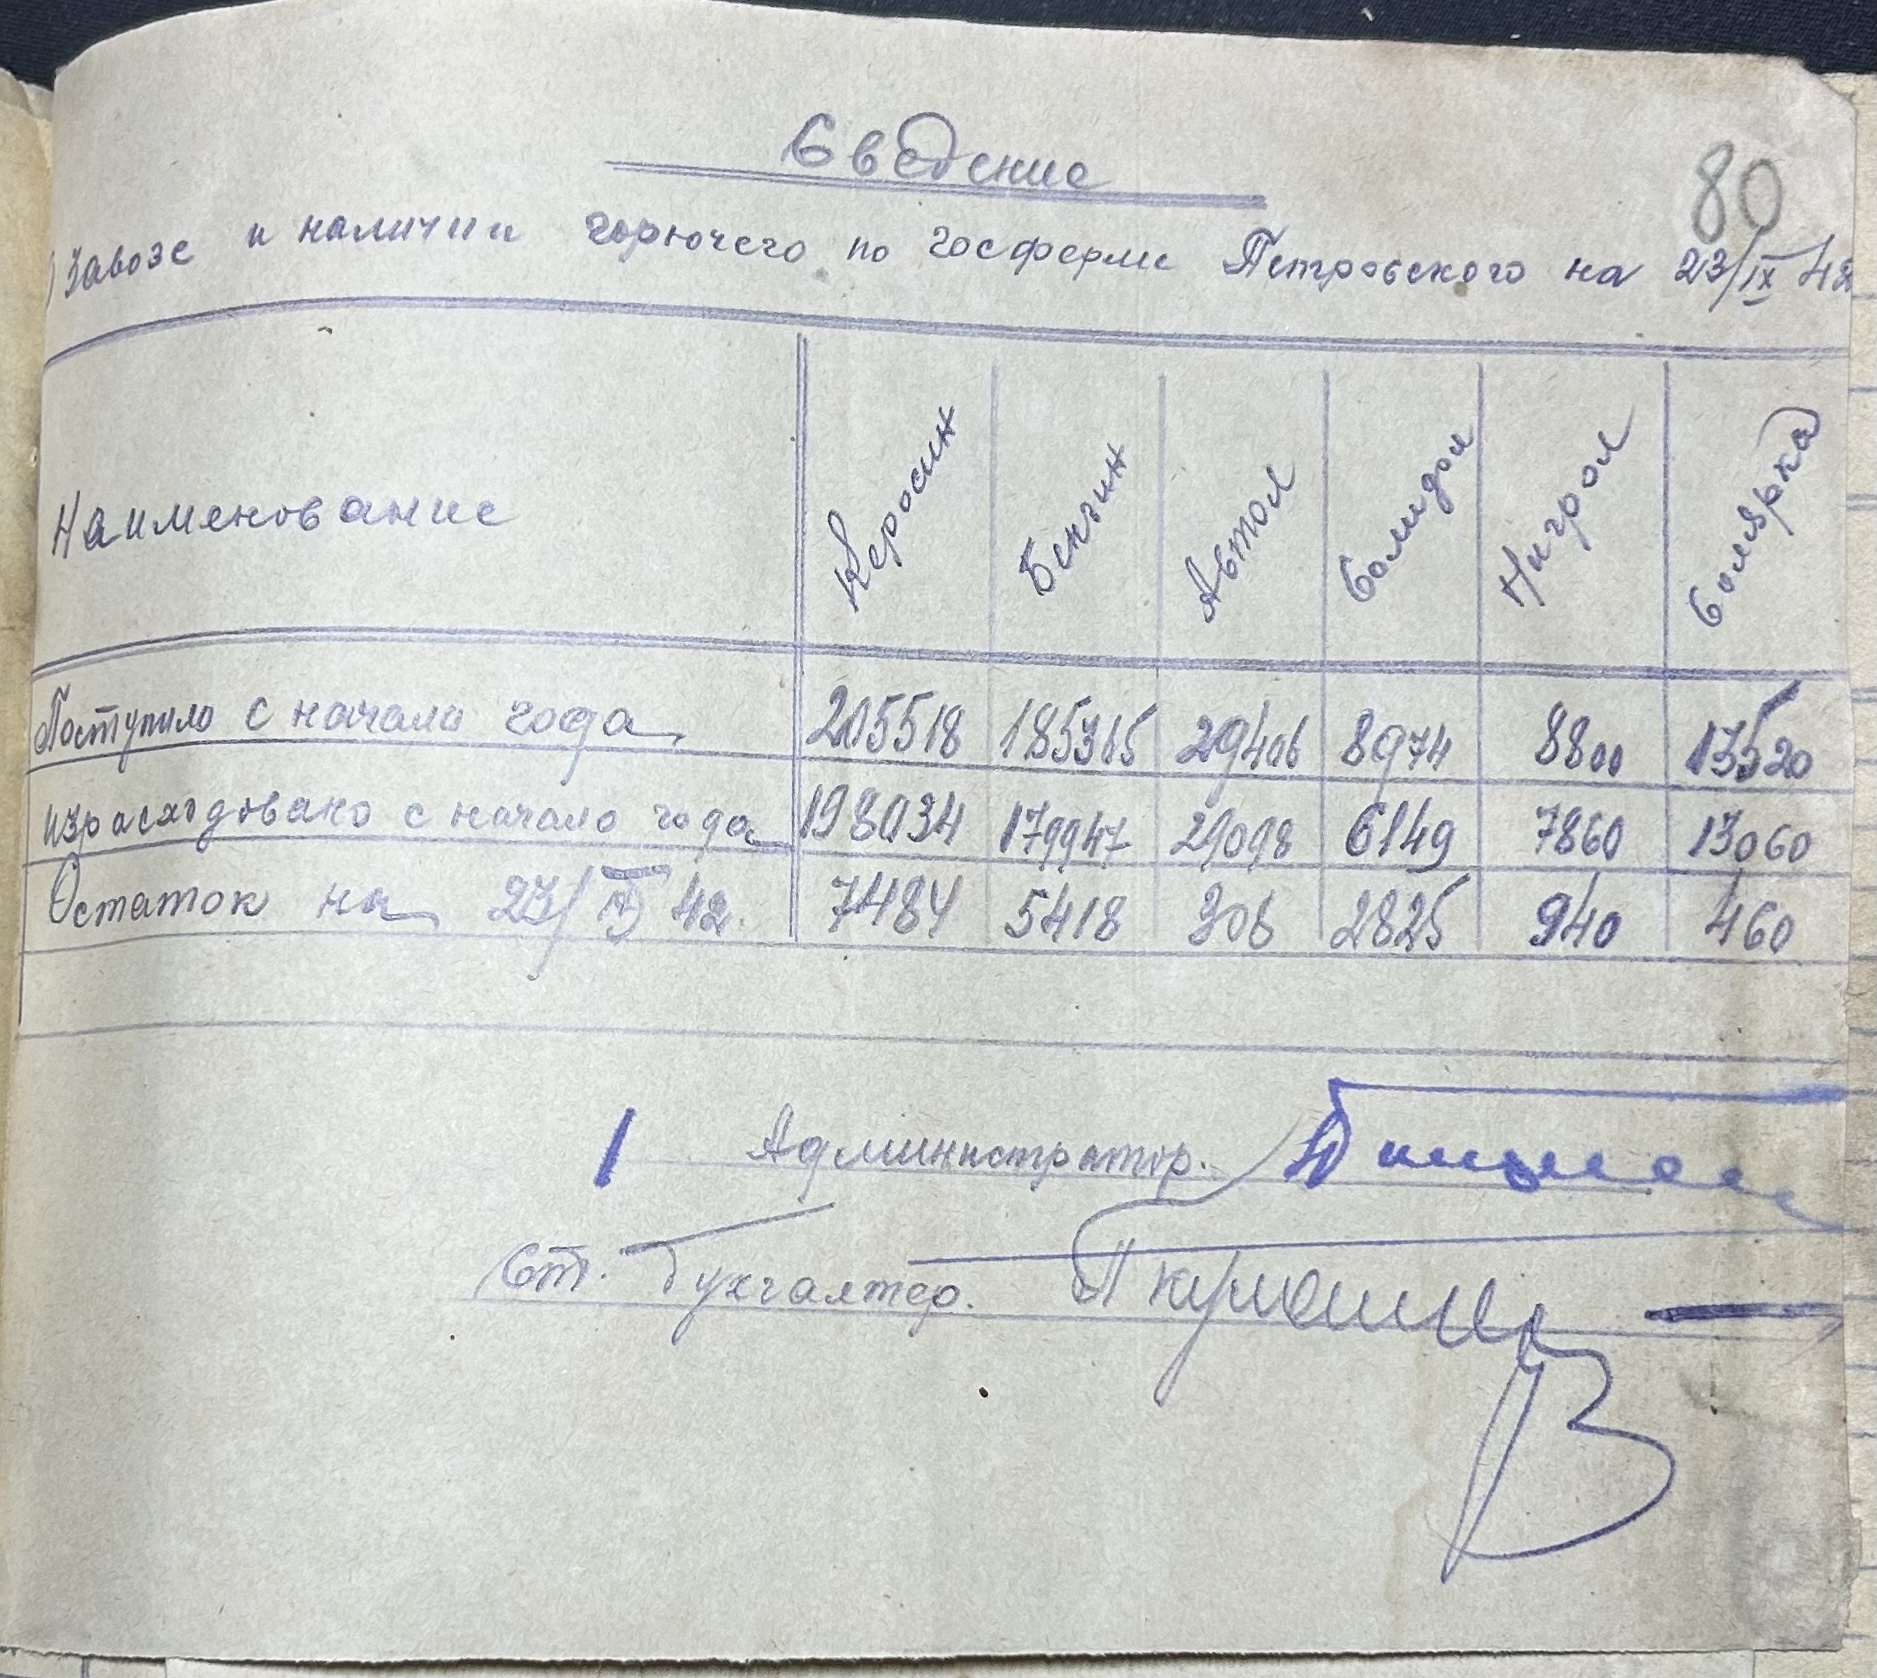 80
Сведение
о завозе и наличии горючего по госферме Петровского на 23/IX 42
Наименование Керосин Бензин Автол Солидол Нигрол Солярка
Поступило с начала года 205518 185365 29406 8974 8800 13520
израсходовано с начало года 198034 179947 29098 6149 7860 13060
Остаток на 23/IX 42. 7484 5418 308 2825 940 460
Администратор.
Ст. бухгалтер.